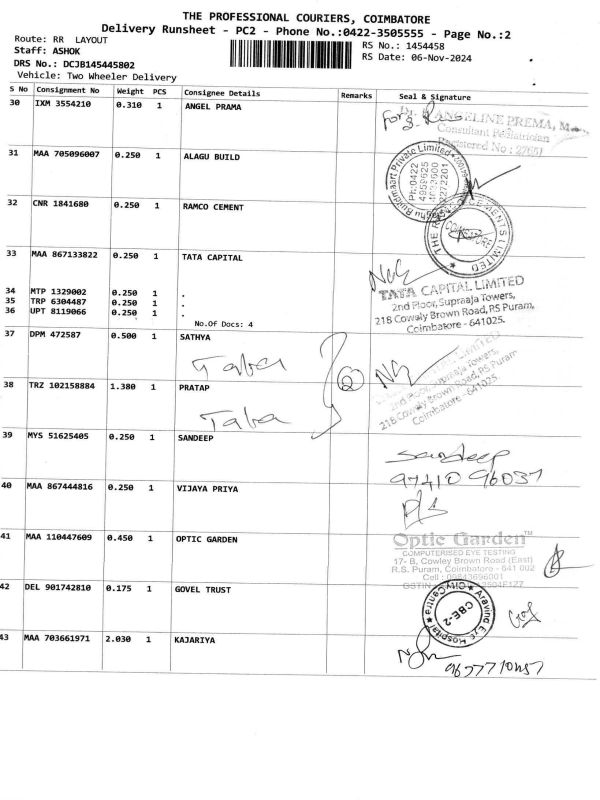 THE PROFESSIONAL COURIERS, COIMBATORE
Delivery Runsheet - PC2 - Phone No.:0422-3505555 - Page No.:2
Route: RR LAYOUT
RS No.: 1454458
Staff: ASHOK
RS Date: 06-Nov-2024
DRS No.: DCJB145445802
Vehicle: Two Wheeler Delivery
S No Consignment No Weight PCS Consignee Details Remarks Seal & Signature
30 IXM 3554210 0.310 1 ANGEL PRAMA
For
ANGELINE PREMA, M
Consultant Pediatrician
Registered No : 27651
31 MAA 705096007 0.250 1 ALAGU BUILD
Buildmaart Private Limited
Ph:0422
4959625
4232600
2272201
32 CNR 1841680 0.250 1 RAMCO CEMENT
THE RAMCO CEMENTS LIMITED
COIMBATORE
33 MAA 867133822 0.250 1 TATA CAPITAL
34 MTP 1329002 0.250 1 .
35 TRP 6304487 0.250 1 .
36 UPT 8119066 0.250 1 .
No.Of Docs: 4
TATA CAPITAL LIMITED
2nd Floor, Supraaja Towers,
218 Cowely Brown Road, RS Puram,
Coimbatore - 641025.
37 DPM 472587 0.500 1 SATHYA
Taba
2
2nd Floor, Supraaja Towers,
218 Cowely Brown Road, RS Puram
Coimbatore - 641025
38 TRZ 102158884 1.380 1 PRATAP
Taba
39 MYS 51625405 0.250 1 SANDEEP
Sandeep
97410 96037
40 MAA 867444816 0.250 1 VIJAYA PRIYA
41 MAA 110447609 0.450 1 OPTIC GARDEN
Optic Garden™
COMPUTERISED EYE TESTING
17- B, Cowley Brown Road (East)
R.S. Puram, Coimbatore - 641 002
Cell : 09843696001
42 DEL 901742810 0.175 1 GOVEL TRUST
Aravind Eye Hospital
CBE-2
43 MAA 703661971 2.030 1 KAJARIYA